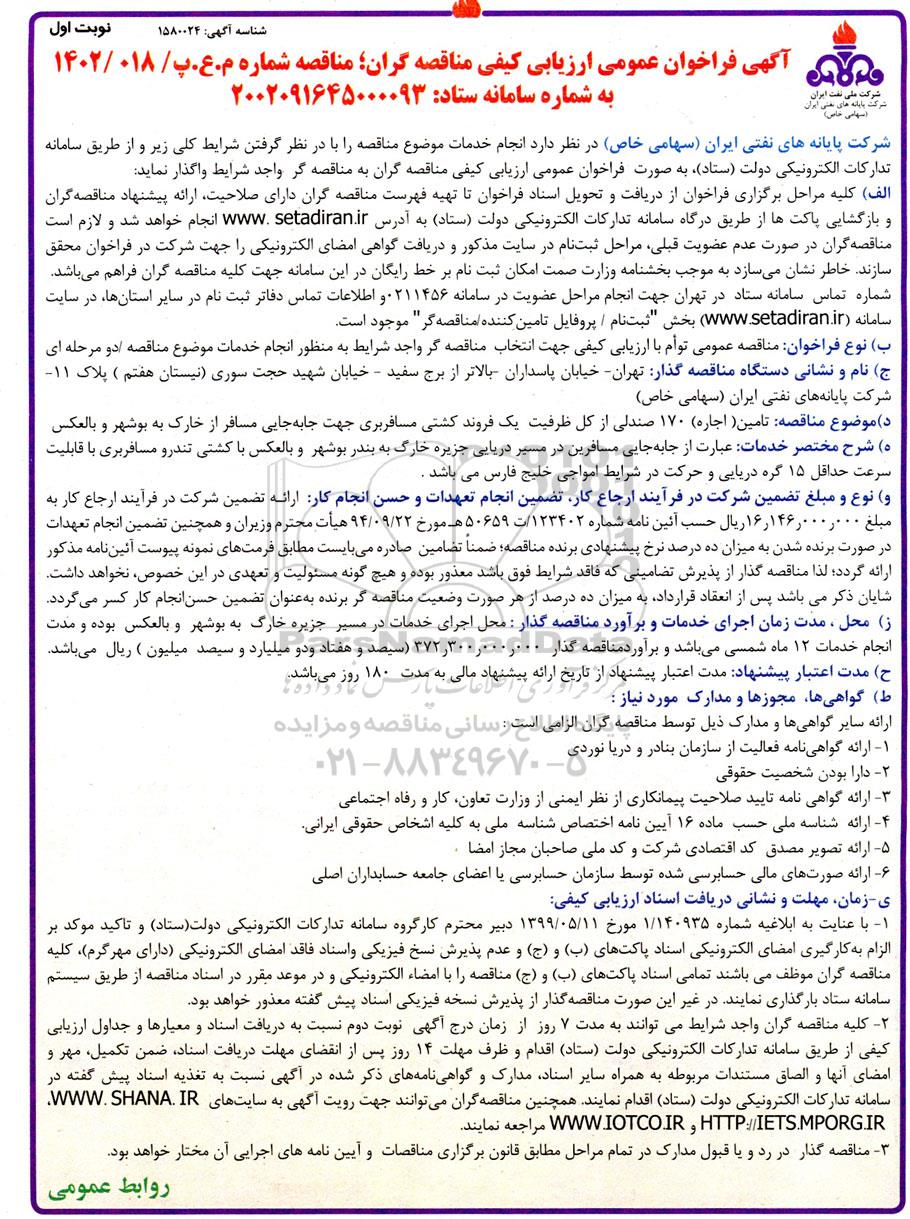 نوبت اول
شناسه آگهی: ۱۵۸۰۰۲۴
آگهی فراخوان عمومی ارزیابی کیفی مناقصه گران؛ مناقصه شماره م.ع.پ/ ۰۱۸ /۱۴۰۲
به شماره سامانه ستاد: ۲۰۰۲۰۹۱۶۴۵۰۰۰۰۹۳
شرکت ملی نفت ایران
شرکت پایانه های نفتی ایران
(سهامی خاص)
شرکت پایانه های نفتی ایران (سهامی خاص) در نظر دارد انجام خدمات موضوع مناقصه را با در نظر گرفتن شرایط کلی زیر و از طریق سامانه
تدارکات الکترونیکی دولت (ستاد)، به صورت فراخوان عمومی ارزیابی کیفی مناقصه گران به مناقصه گر واجد شرایط واگذار نماید:
الف) کلیه مراحل برگزاری فراخوان از دریافت و تحویل اسناد فراخوان تا تهیه فهرست مناقصه گران دارای صلاحیت، ارائه پیشنهاد مناقصه‌گران
و بازگشایی پاکت ها از طریق درگاه سامانه تدارکات الکترونیکی دولت (ستاد) به آدرس www. setadiran.ir انجام خواهد شد و لازم است
مناقصه‌گران در صورت عدم عضویت قبلی، مراحل ثبت‌نام در سایت مذکور و دریافت گواهی امضای الکترونیکی را جهت شرکت در فراخوان محقق
سازند. خاطر نشان می‌سازد به موجب بخشنامه وزارت صمت امکان ثبت نام بر خط رایگان در این سامانه جهت کلیه مناقصه گران فراهم می‌باشد.
شماره تماس سامانه ستاد در تهران جهت انجام مراحل عضویت در سامانه ۰۲۱۱۴۵۶و اطلاعات تماس دفاتر ثبت نام در سایر استان‌ها، در سایت
سامانه (www.setadiran.ir) بخش "ثبت‌نام / پروفایل تامین‌کننده/مناقصه‌گر" موجود است.
ب) نوع فراخوان: مناقصه عمومی توأم با ارزیابی کیفی جهت انتخاب مناقصه گر واجد شرایط به منظور انجام خدمات موضوع مناقصه /دو مرحله ای
ج) نام و نشانی دستگاه مناقصه گذار: تهران- خیابان پاسداران -بالاتر از برج سفید - خیابان شهید حجت سوری (نیستان هفتم ) پلاک ۱۱-
شرکت پایانه‌های نفتی ایران (سهامی خاص)
د)موضوع مناقصه: تامین( اجاره) ۱۷۰ صندلی از کل ظرفیت یک فروند کشتی مسافربری جهت جابه‌جایی مسافر از خارک به بوشهر و بالعکس
ه) شرح مختصر خدمات: عبارت از جابه‌جایی مسافرین در مسیر دریایی جزیره خارگ به بندر بوشهر و بالعکس با کشتی تندرو مسافربری با قابلیت
سرعت حداقل ۱۵ گره دریایی و حرکت در شرایط امواجی خلیج فارس می باشد .
و) نوع و مبلغ تضمین شرکت در فرآیند ارجاع کار، تضمین انجام تعهدات و حسن انجام کار: ارائه تضمین شرکت در فرآیند ارجاع کار به
مبلغ ۱۶٫۱۴۶٫۰۰۰٫۰۰۰ریال حسب آئین نامه شماره ۱۲۳۴۰۲/ت ۵۰۶۵۹ هـ مورخ ۹۴/۰۹/۲۲ هیأت محترم وزیران و همچنین تضمین انجام تعهدات
در صورت برنده شدن به میزان ده درصد نرخ پیشنهادی برنده مناقصه؛ ضمناً تضامین صادره می‌بایست مطابق فرمت‌های نمونه پیوست آئین‌نامه مذکور
ارائه گردد؛ لذا مناقصه گذار از پذیرش تضامینی که فاقد شرایط فوق باشد معذور بوده و هیچ گونه مسئولیت و تعهدی در این خصوص، نخواهد داشت.
شایان ذکر می باشد پس از انعقاد قرارداد، به میزان ده درصد از هر صورت وضعیت مناقصه گر برنده به‌عنوان تضمین حسن‌انجام کار کسر می‌گردد.
ز) محل ، مدت زمان اجرای خدمات و برآورد مناقصه گذار : محل اجرای خدمات در مسیر جزیره خارگ به بوشهر و بالعکس بوده و مدت
انجام خدمات ۱۲ ماه شمسی می‌باشد و برآوردمناقصه گذار ۳۷۲٫۳۰۰٫۰۰۰٫۰۰۰ (سیصد و هفتاد ودو میلیارد و سیصد میلیون ) ریال می‌باشد.
ح) مدت اعتبار پیشنهاد: مدت اعتبار پیشنهاد از تاریخ ارائه پیشنهاد مالی به مدت ۱۸۰ روز می‌باشد.
ط) گواهی‌ها، مجوزها و مدارک مورد نیاز :
ارائه سایر گواهی‌ها و مدارک ذیل توسط مناقصه گران الزامی است :
۱- ارائه گواهی‌نامه فعالیت از سازمان بنادر و دریا نوردی
۲- دارا بودن شخصیت حقوقی
۳- ارائه گواهی نامه تایید صلاحیت پیمانکاری از نظر ایمنی از وزارت تعاون، کار و رفاه اجتماعی
۴- ارائه شناسه ملی حسب ماده ۱۶ آیین نامه اختصاص شناسه ملی به کلیه اشخاص حقوقی ایرانی.
۵- ارائه تصویر مصدق کد اقتصادی شرکت و کد ملی صاحبان مجاز امضا .
۶- ارائه صورت‌های مالی حسابرسی شده توسط سازمان حسابرسی یا اعضای جامعه حسابداران اصلی
ParsNamadData
مرکز فرآوری اطلاعات پارس نماد داده ها
پایگاه اطلاع رسانی مناقصه و مزایده
۰۲۱-۸۸۳۴۹۶۷۰-۵
ی-زمان، مهلت و نشانی دریافت اسناد ارزیابی کیفی:
۱- با عنایت به ابلاغیه شماره ۱/۱۴۰۹۳۵ مورخ ۱۳۹۹/۰۵/۱۱ دبیر محترم کارگروه سامانه تدارکات الکترونیکی دولت(ستاد) و تاکید موکد بر
الزام به‌کارگیری امضای الکترونیکی اسناد پاکت‌های (ب) و (ج) و عدم پذیرش نسخ فیزیکی واسناد فاقد امضای الکترونیکی (دارای مهرگرم)، کلیه
مناقصه گران موظف می باشند تمامی اسناد پاکت‌های (ب) و (ج) مناقصه را با امضاء الکترونیکی و در موعد مقرر در اسناد مناقصه از طریق سیستم
سامانه ستاد بارگذاری نمایند. در غیر این صورت مناقصه‌گذار از پذیرش نسخه فیزیکی اسناد پیش گفته معذور خواهد بود.
۲- کلیه مناقصه گران واجد شرایط می توانند به مدت ۷ روز از زمان درج آگهی نوبت دوم نسبت به دریافت اسناد و معیارها و جداول ارزیابی
کیفی از طریق سامانه تدارکات الکترونیکی دولت (ستاد) اقدام و ظرف مهلت ۱۴ روز پس از انقضای مهلت دریافت اسناد، ضمن تکمیل، مهر و
امضای آنها و الصاق مستندات مربوطه به همراه سایر اسناد، مدارک و گواهی‌نامه‌های ذکر شده در آگهی نسبت به تغذیه اسناد پیش گفته در
سامانه تدارکات الکترونیکی دولت (ستاد) اقدام نمایند. همچنین مناقصه‌گران می‌توانند جهت رویت آگهی به سایت‌های WWW. SHANA. IR،
HTTP://IETS.MPORG.IR و WWW.IOTCO.IR مراجعه نمایند.
۳- مناقصه گذار در رد و یا قبول مدارک در تمام مراحل مطابق قانون برگزاری مناقصات و آیین نامه های اجرایی آن مختار خواهد بود.
روابط عمومی